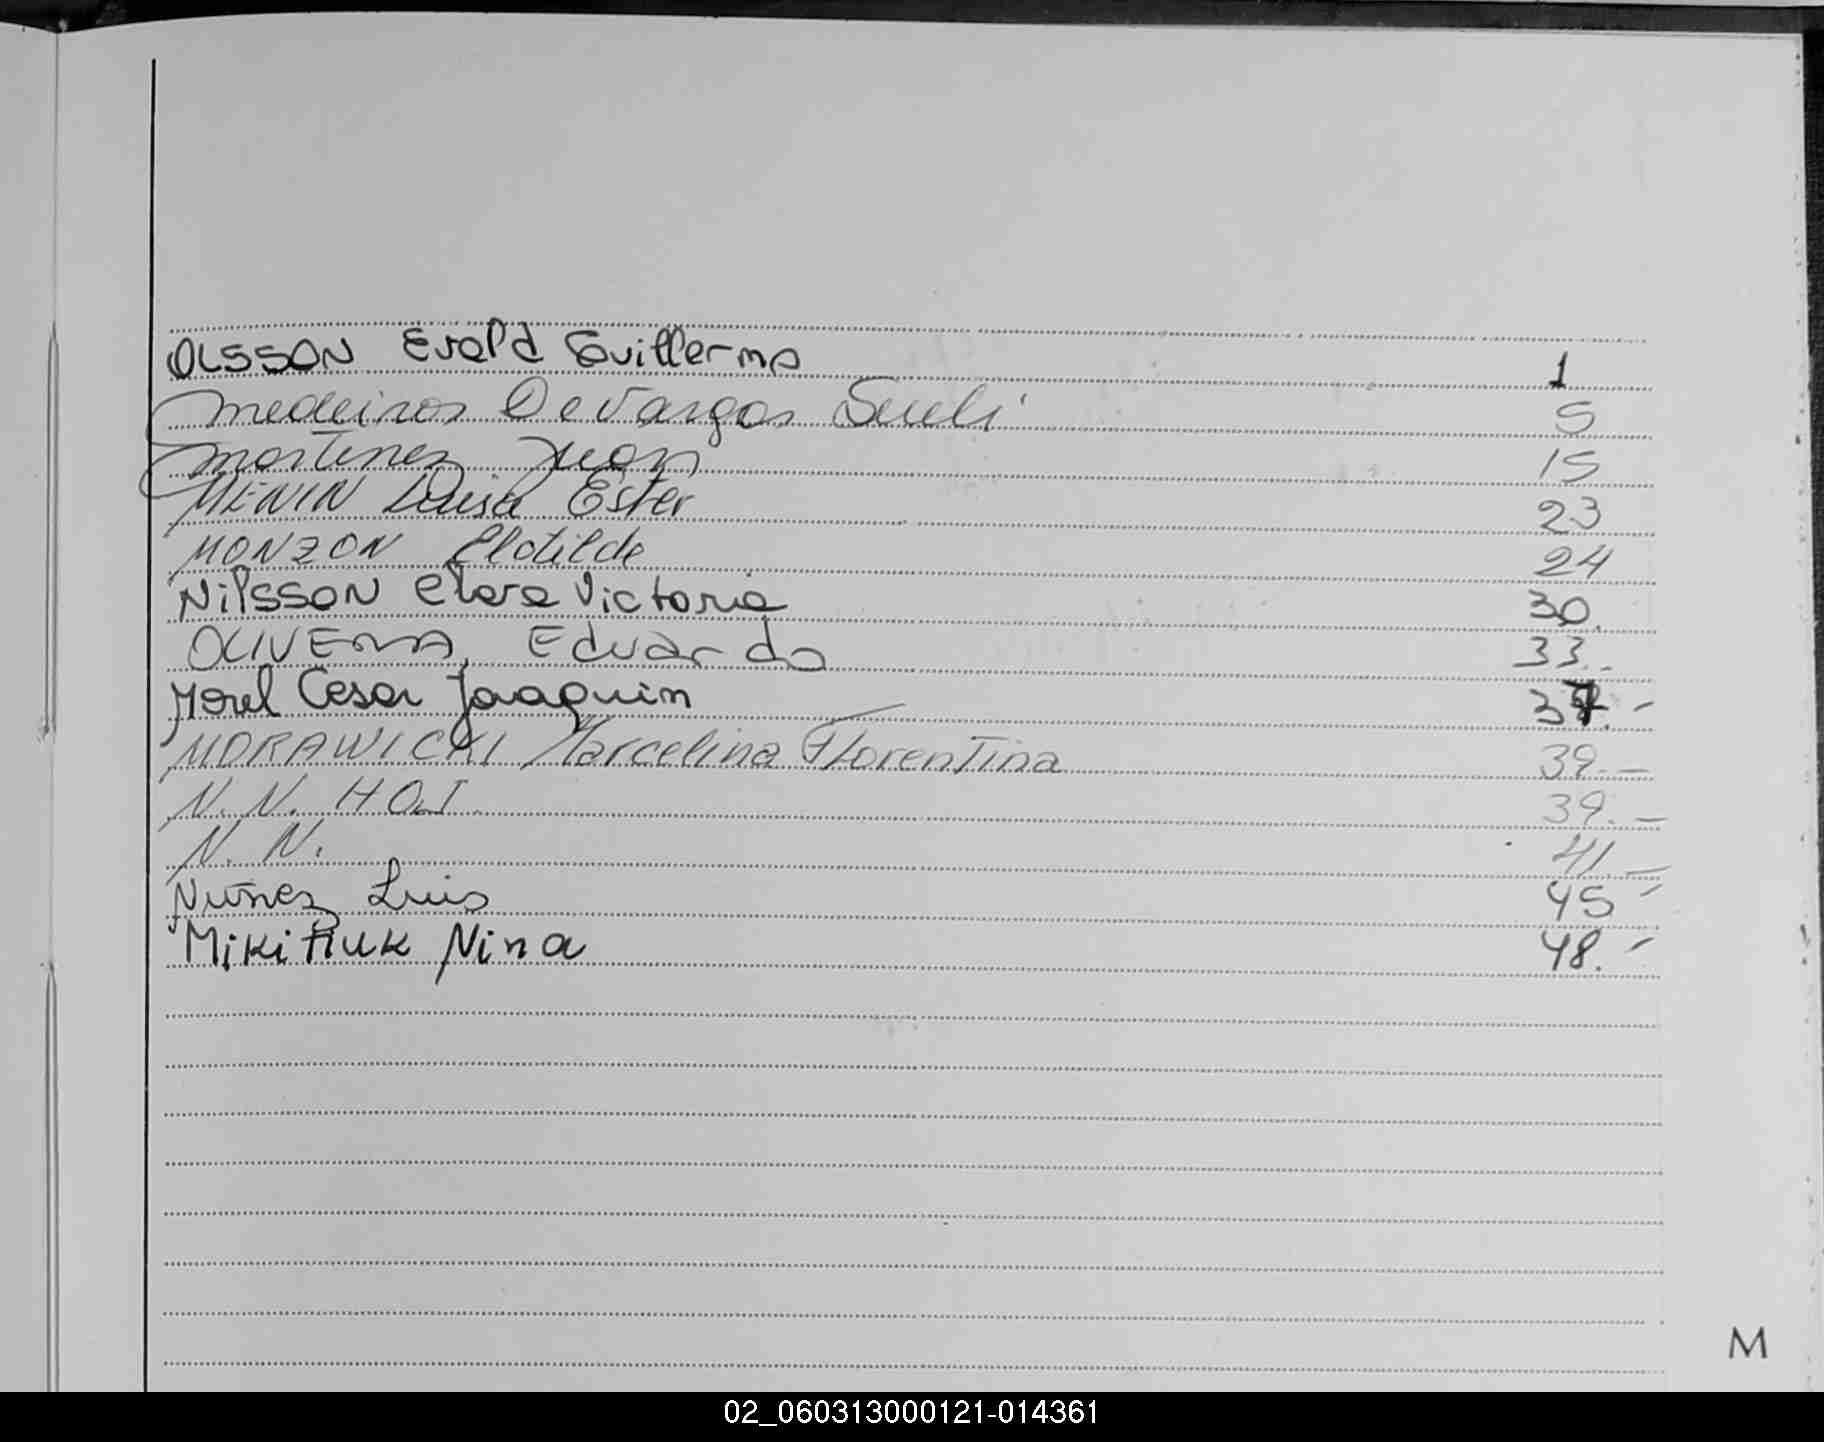 OLSSON Evald Guillermo 1
Medeiros De Vargas Sueli 5
Martinez Juan 15
MENIN Luisa Ester 23
MONZON Clotilde 24
Nilsson Clara Victoria 30.
OLIVERA, Eduardo 33..
Morel Cesar Joaquin 37. -
MORAWICKI Marcelina Florentina 39. -
N. N. HOJ 39. -
N. N. 41. -
Nuñez Luis 45 -
Mikitiuk Nina 48. -
M
02_060313000121-014361